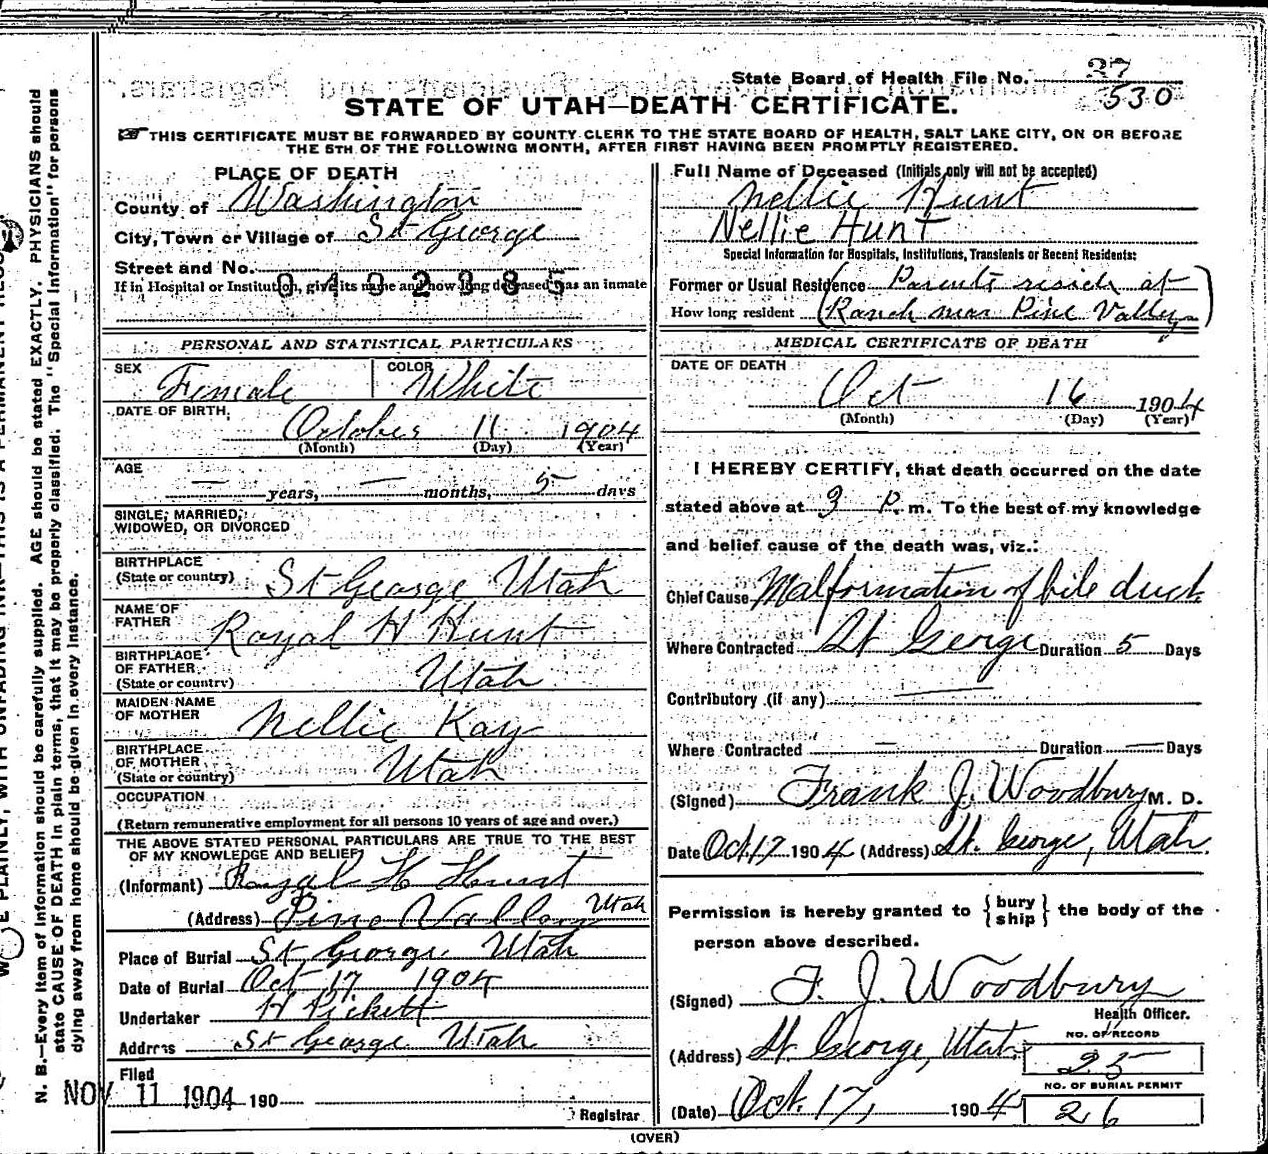 State Board of Health File No. 37
530
STATE OF UTAH—DEATH CERTIFICATE.
THIS CERTIFICATE MUST BE FORWARDED BY COUNTY CLERK TO THE STATE BOARD OF HEALTH, SALT LAKE CITY, ON OR BEFORE
THE 5TH OF THE FOLLOWING MONTH, AFTER FIRST HAVING BEEN PROMPTLY REGISTERED.
PLACE OF DEATH
County of Washington
City, Town or Village of St George
Street and No.
0402885
If in Hospital or Institution, give its name and how long deceased was an inmate
PERSONAL AND STATISTICAL PARTICULARS
SEX Female COLOR White
DATE OF BIRTH, October 11 1904
(Month) (Day) (Year)
AGE
— years, — months, 5 days
SINGLE, MARRIED,
WIDOWED, OR DIVORCED
BIRTHPLACE
(State or country) St George Utah
NAME OF
FATHER Royal H Hunt
BIRTHPLACE
OF FATHER
(State or country) Utah
MAIDEN NAME
OF MOTHER Nellie Kay
BIRTHPLACE
OF MOTHER
(State or country) Utah
OCCUPATION
(Return remunerative employment for all persons 10 years of age and over.)
THE ABOVE STATED PERSONAL PARTICULARS ARE TRUE TO THE BEST
OF MY KNOWLEDGE AND BELIEF
(Informant) Royal H Hunt
(Address) Pine Valley Utah
Place of Burial St George Utah
Date of Burial Oct 17 1904
Undertaker H Pickett
Address St George Utah
Filed
NOV 11 1904 190
Registrar
Full Name of Deceased (Initials only will not be accepted)
Nellie Hunt
Nellie Hunt
Special Information for Hospitals, Institutions, Transients or Recent Residents:
Former or Usual Residence (Parents reside at
How long resident (Ranch near Pine Valley)
MEDICAL CERTIFICATE OF DEATH
DATE OF DEATH
Oct 16 1904
(Month) (Day) (Year)
I HEREBY CERTIFY, that death occurred on the date
stated above at 3 P. m. To the best of my knowledge
and belief cause of the death was, viz.:
Chief Cause Malformation of bile duct
Where Contracted St George Duration 5 Days
Contributory (if any) —
Where Contracted — Duration — Days
(Signed) Frank J. Woodbury M. D.
Date Oct. 17 1904 (Address) St. George, Utah.
Permission is hereby granted to {bury
ship} the body of the
person above described.
(Signed) F. J. Woodbury
Health Officer.
(Address) St. George, Utah
NO. OF RECORD
25
NO. OF BURIAL PERMIT
(Date) Oct. 17, 1904 26
(OVER)
N. B.—Every item of information should be carefully supplied. AGE should be stated EXACTLY. PHYSICIANS should
state CAUSE OF DEATH in plain terms, that it may be properly classified. The "Special Information" for persons
dying away from home should be given in every instance.